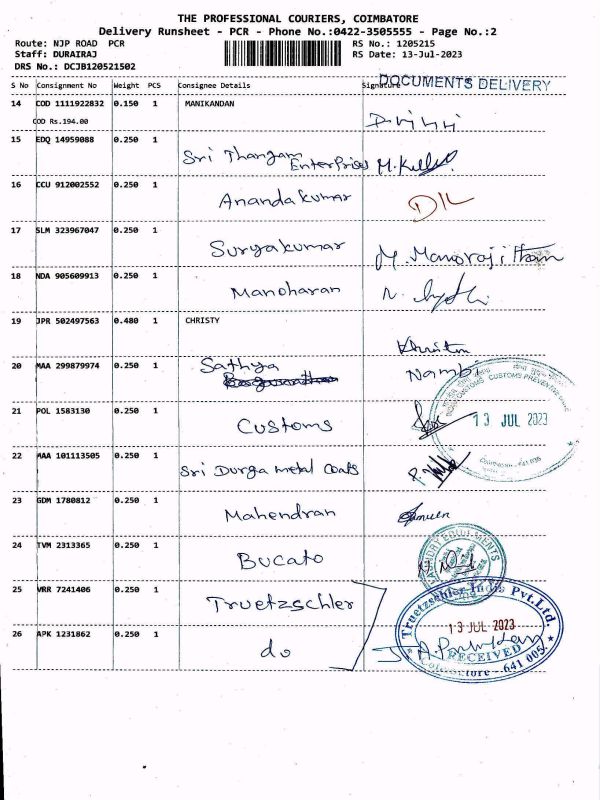 THE PROFESSIONAL COURIERS, COIMBATORE
Delivery Runsheet - PCR - Phone No.:0422-3505555 - Page No.:2
Route: NJP ROAD PCR
RS No.: 1205215
Staff: DURAIRAJ
RS Date: 13-Jul-2023
DRS No.: DCJB120521502
DOCUMENTS DELIVERY
S No Consignment No Weight PCS Consignee Details Signature
14 COD 1111922832 0.150 1 MANIKANDAN
COD Rs.194.00
15 EDQ 14959088 0.250 1
Sri Thangam Enterprises M.
16 CCU 912002552 0.250 1
Anandakumar
17 SLM 323967047 0.250 1
Suryakumar M. Manorajitham
18 NDA 905609913 0.250 1
Manoharan
19 JPR 502497563 0.480 1 CHRISTY
20 MAA 299879974 0.250 1
Sathya Nambi
21 POL 1583130 0.250 1
Customs
INDIAN CUSTOMS CUSTOMS PREVENTIVE
13 JUL 2023
22 MAA 101113505 0.250 1
Sri Durga metal Coats
23 GDM 1780812 0.250 1
Mahendran
24 TVM 2313365 0.250 1
Bucato
LAUNDRY EQUIPMENTS
25 VRR 7241406 0.250 1
Truetzschler
Truetzschler India Pvt.Ltd.
13 JUL 2023
RECEIVED
Coimbatore - 641 005.
26 APK 1231862 0.250 1
do